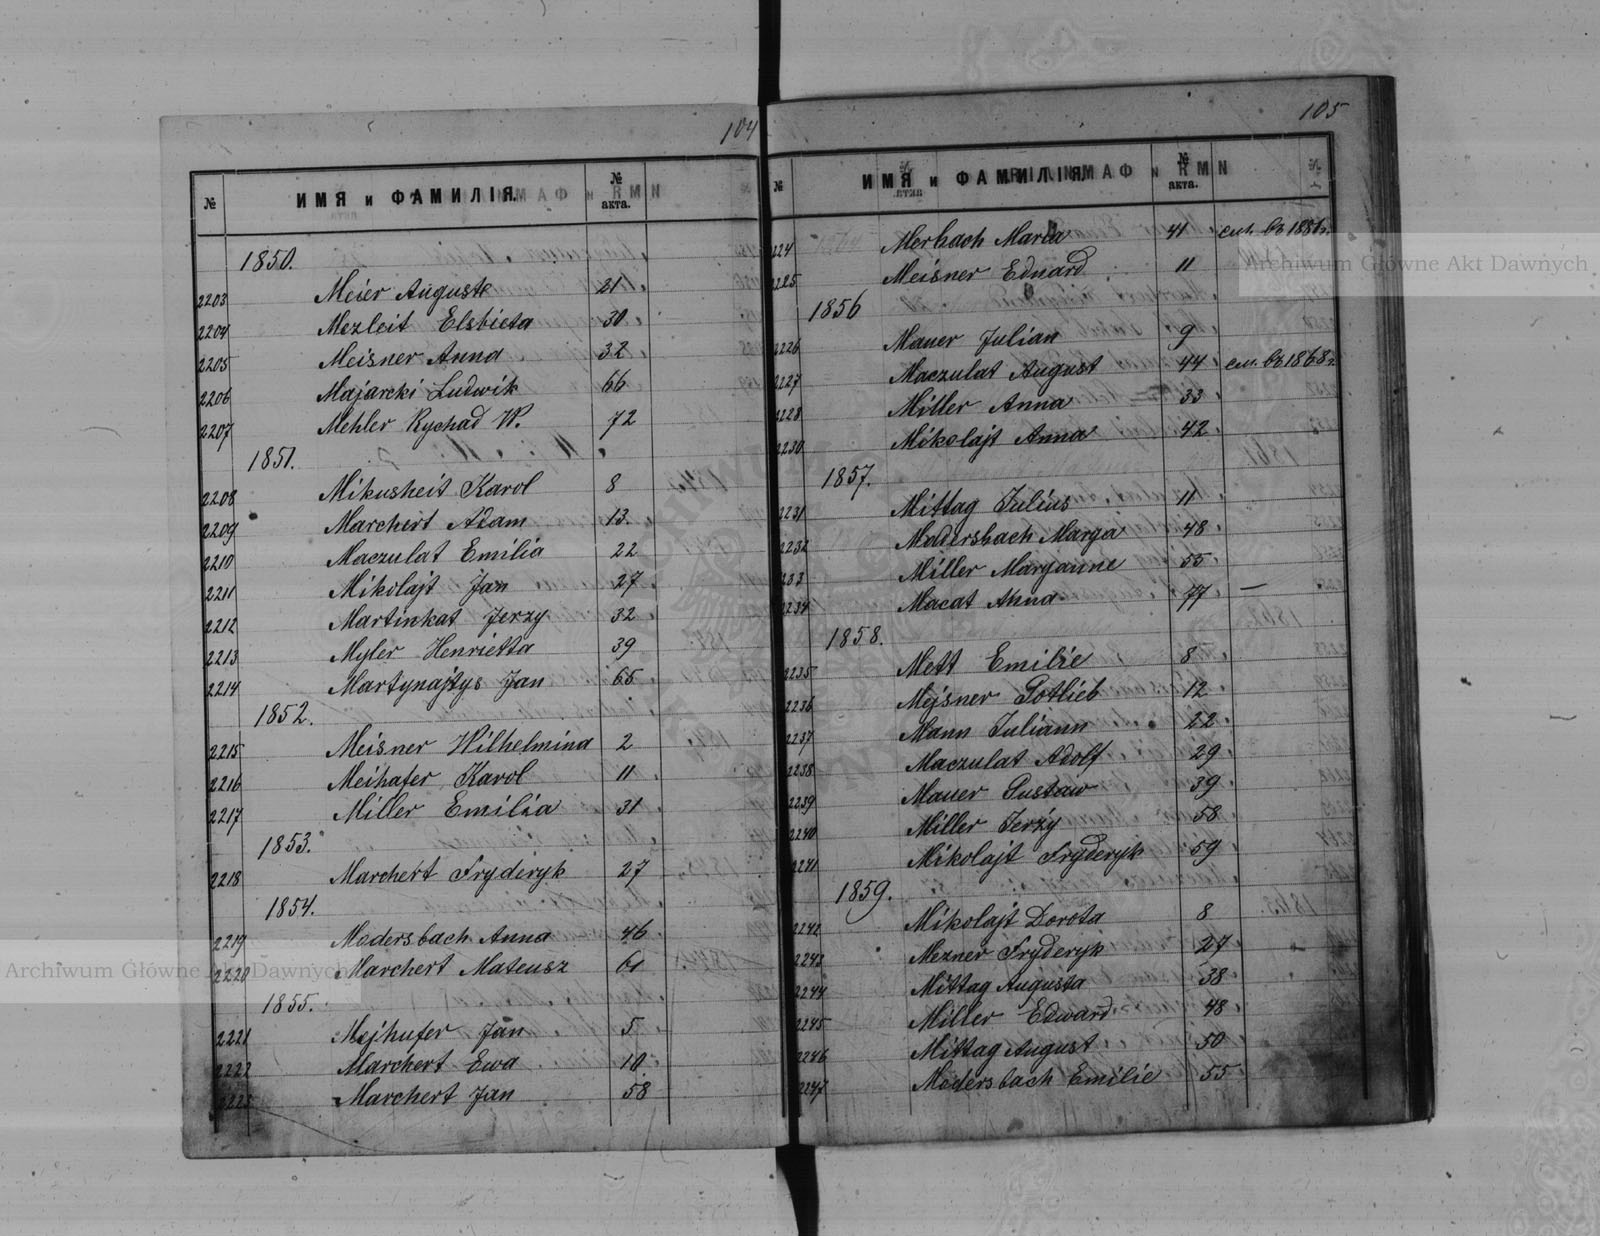 104
№ ИМЯ и ФАМИЛІЯ. № акта.
1850.
2203 Meier Auguste 21
2204 Mezleit Elsbieta 30
2205 Meisner Anna 32
2206 Majarcki Ludwik 66
2207 Mehler Rychad W. 72
1851.
2208 Mikusheit Karol 8
2209 Marchert Adam 13
2210 Maczulat Emilia 22
2211 Mikolajt Jan 27
2212 Martinkat Jerzy 32
2213 Myler Henrietta 39
2214 Martynajtys Jan 65
1852.
2215 Meisner Wilhelmina 2
2216 Meihafer Karol 11
2217 Miller Emilia 31
1853.
2218 Marchert Fryderyk 27
1854.
2219 Modersbach Anna 46
2220 Marchert Mateusz 61
1855.
2221 Mejhufer Jan 5
2222 Marchert Ewa 10
2223 Marchert Jan 58
105
№ ИМЯ и ФАМИЛІЯ. № акта.
224 Merbach Maria 41 см. въ 1881г.
2225 Meisner Eduard 11
1856
2226 Mauer Julian 9
2227 Maczulat August 44 см. въ 1868г.
2228 Miller Anna 33
2230 Mikolajt Anna 42
1857.
2231 Mittag Julius 11
2232 Modersbach Marga 48
Miller Maryanne 55
2234 Macat Anna 77 —
1858.
2235 Mett Emilie 8
2236 Mejsner Gotlieb 12
2237 Mann Juliann 22
2238 Maczulat Adolf 29
2239 Mauer Gustaw 39
2240 Miller Jerzy 58
2241 Mikolajt Fryderyk 59
1859.
2242 Mikolajt Dorota 8
2243 Mezner Fryderyk 27
2244 Mittag Augusta 38
2245 Miller Edward 48
2246 Mittag August 50
2247 Modersbach Emilie 55
Archiwum Główne Akt Dawnych
Archiwum Główne Akt Dawnych